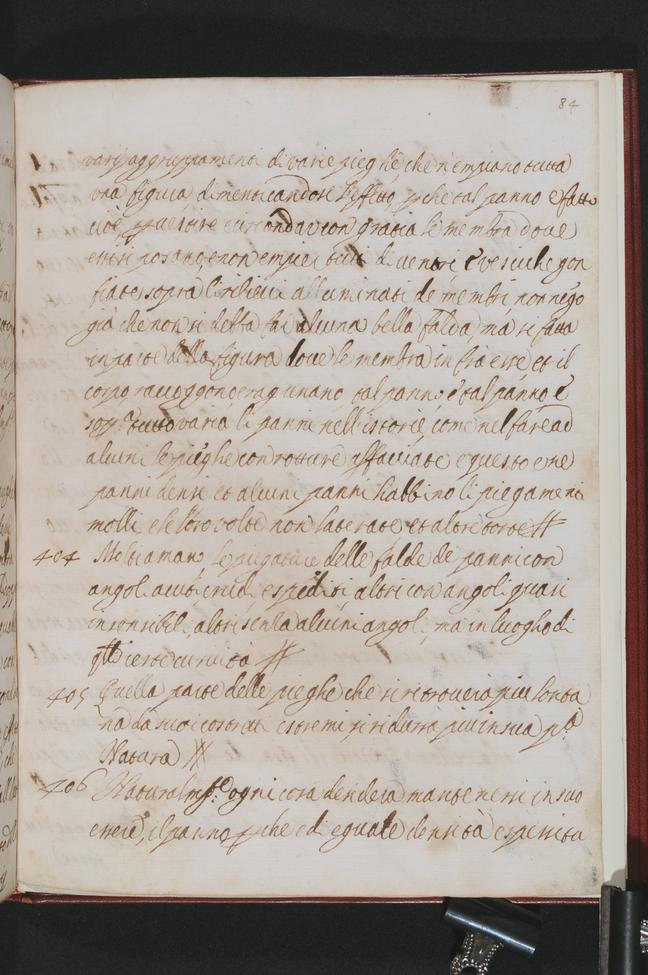 84
varij aggruppamenti di varie pieghe, che n'empiano tutta
una figura dimenticandosi l'effetto, p che tal panno è fatto
cioè p vestire e circondar con gratia le membra dove
essi posano, e non empier tutti di ventri è vesciche gon
fiate sopra li rilievi alluminati de membri non niego
già che non si debba fai alcuna bella falda, ma si fatta
in parte della figura dove le membra infra esse et il
corpo raccoggono e ragunano tal panno è tal panno è
sop.a tutto varia li panni nell'istorie, come nel fare ad
alcuni le pieghe con rotture affacciate e questo è ne
panni densi et alcuni panni habbino li piegamenti
molli e le loro volte non laterate et altre torte //
404 Molti amano le piegature delle falde de panni con
angoli acuti crudi, espediti altri con angoli quasi
insensibili, altri senza alcuni angoli, ma in luogho di
qlli certe curvità //
405 Quella parte delle pieghe che si ritroverà piu lonta
na da suoi costretti estremi si ridurrà più in sua p.a
Natura //
406 Naturalm.te ogni cosa desidera mantenersi in suo
essere, il panno p che è di eguale densità e spessita